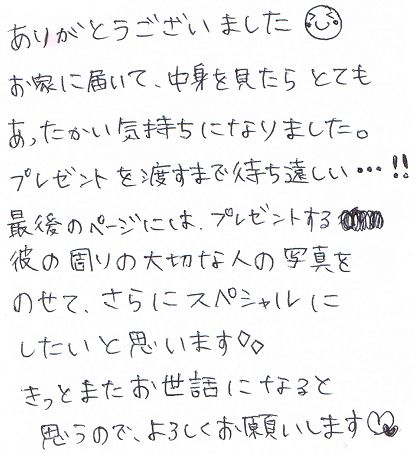 ありがとうございました
お家に届いて、中身を見たら とても
あったかい気持ちになりました。
プレゼントを渡すまで待ち遠しい…!!
最後のページには、プレゼントする
彼の周りの大切な人の写真を
のせて、さらにスペシャルに
したいと思います◇◇
きっとまたお世話になると
思うので、よろしくお願いします♡